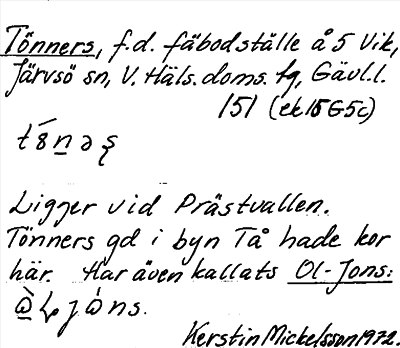 Tönners, f.d. fäbodställe å 5 Vik,
Järvsö sn, V. Häls. doms. tg, Gävl.l.
151 (ek 15G5c)
Ligger vid Prästvallen.
Tönners gd i byn Tå hade kor
här. Har även kallats Ol-Jons:
Kerstin Mickelsson 1972.